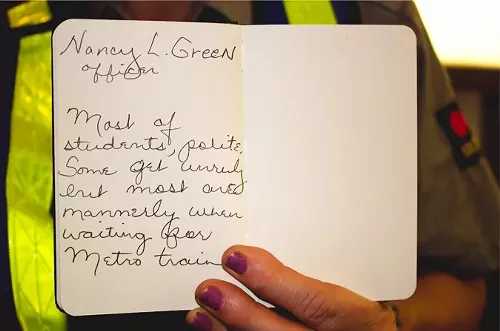 Nancy L. Green
officer
Most of
students, polite,
Some get unruly
but most are
mannerly when
waiting for
Metro train